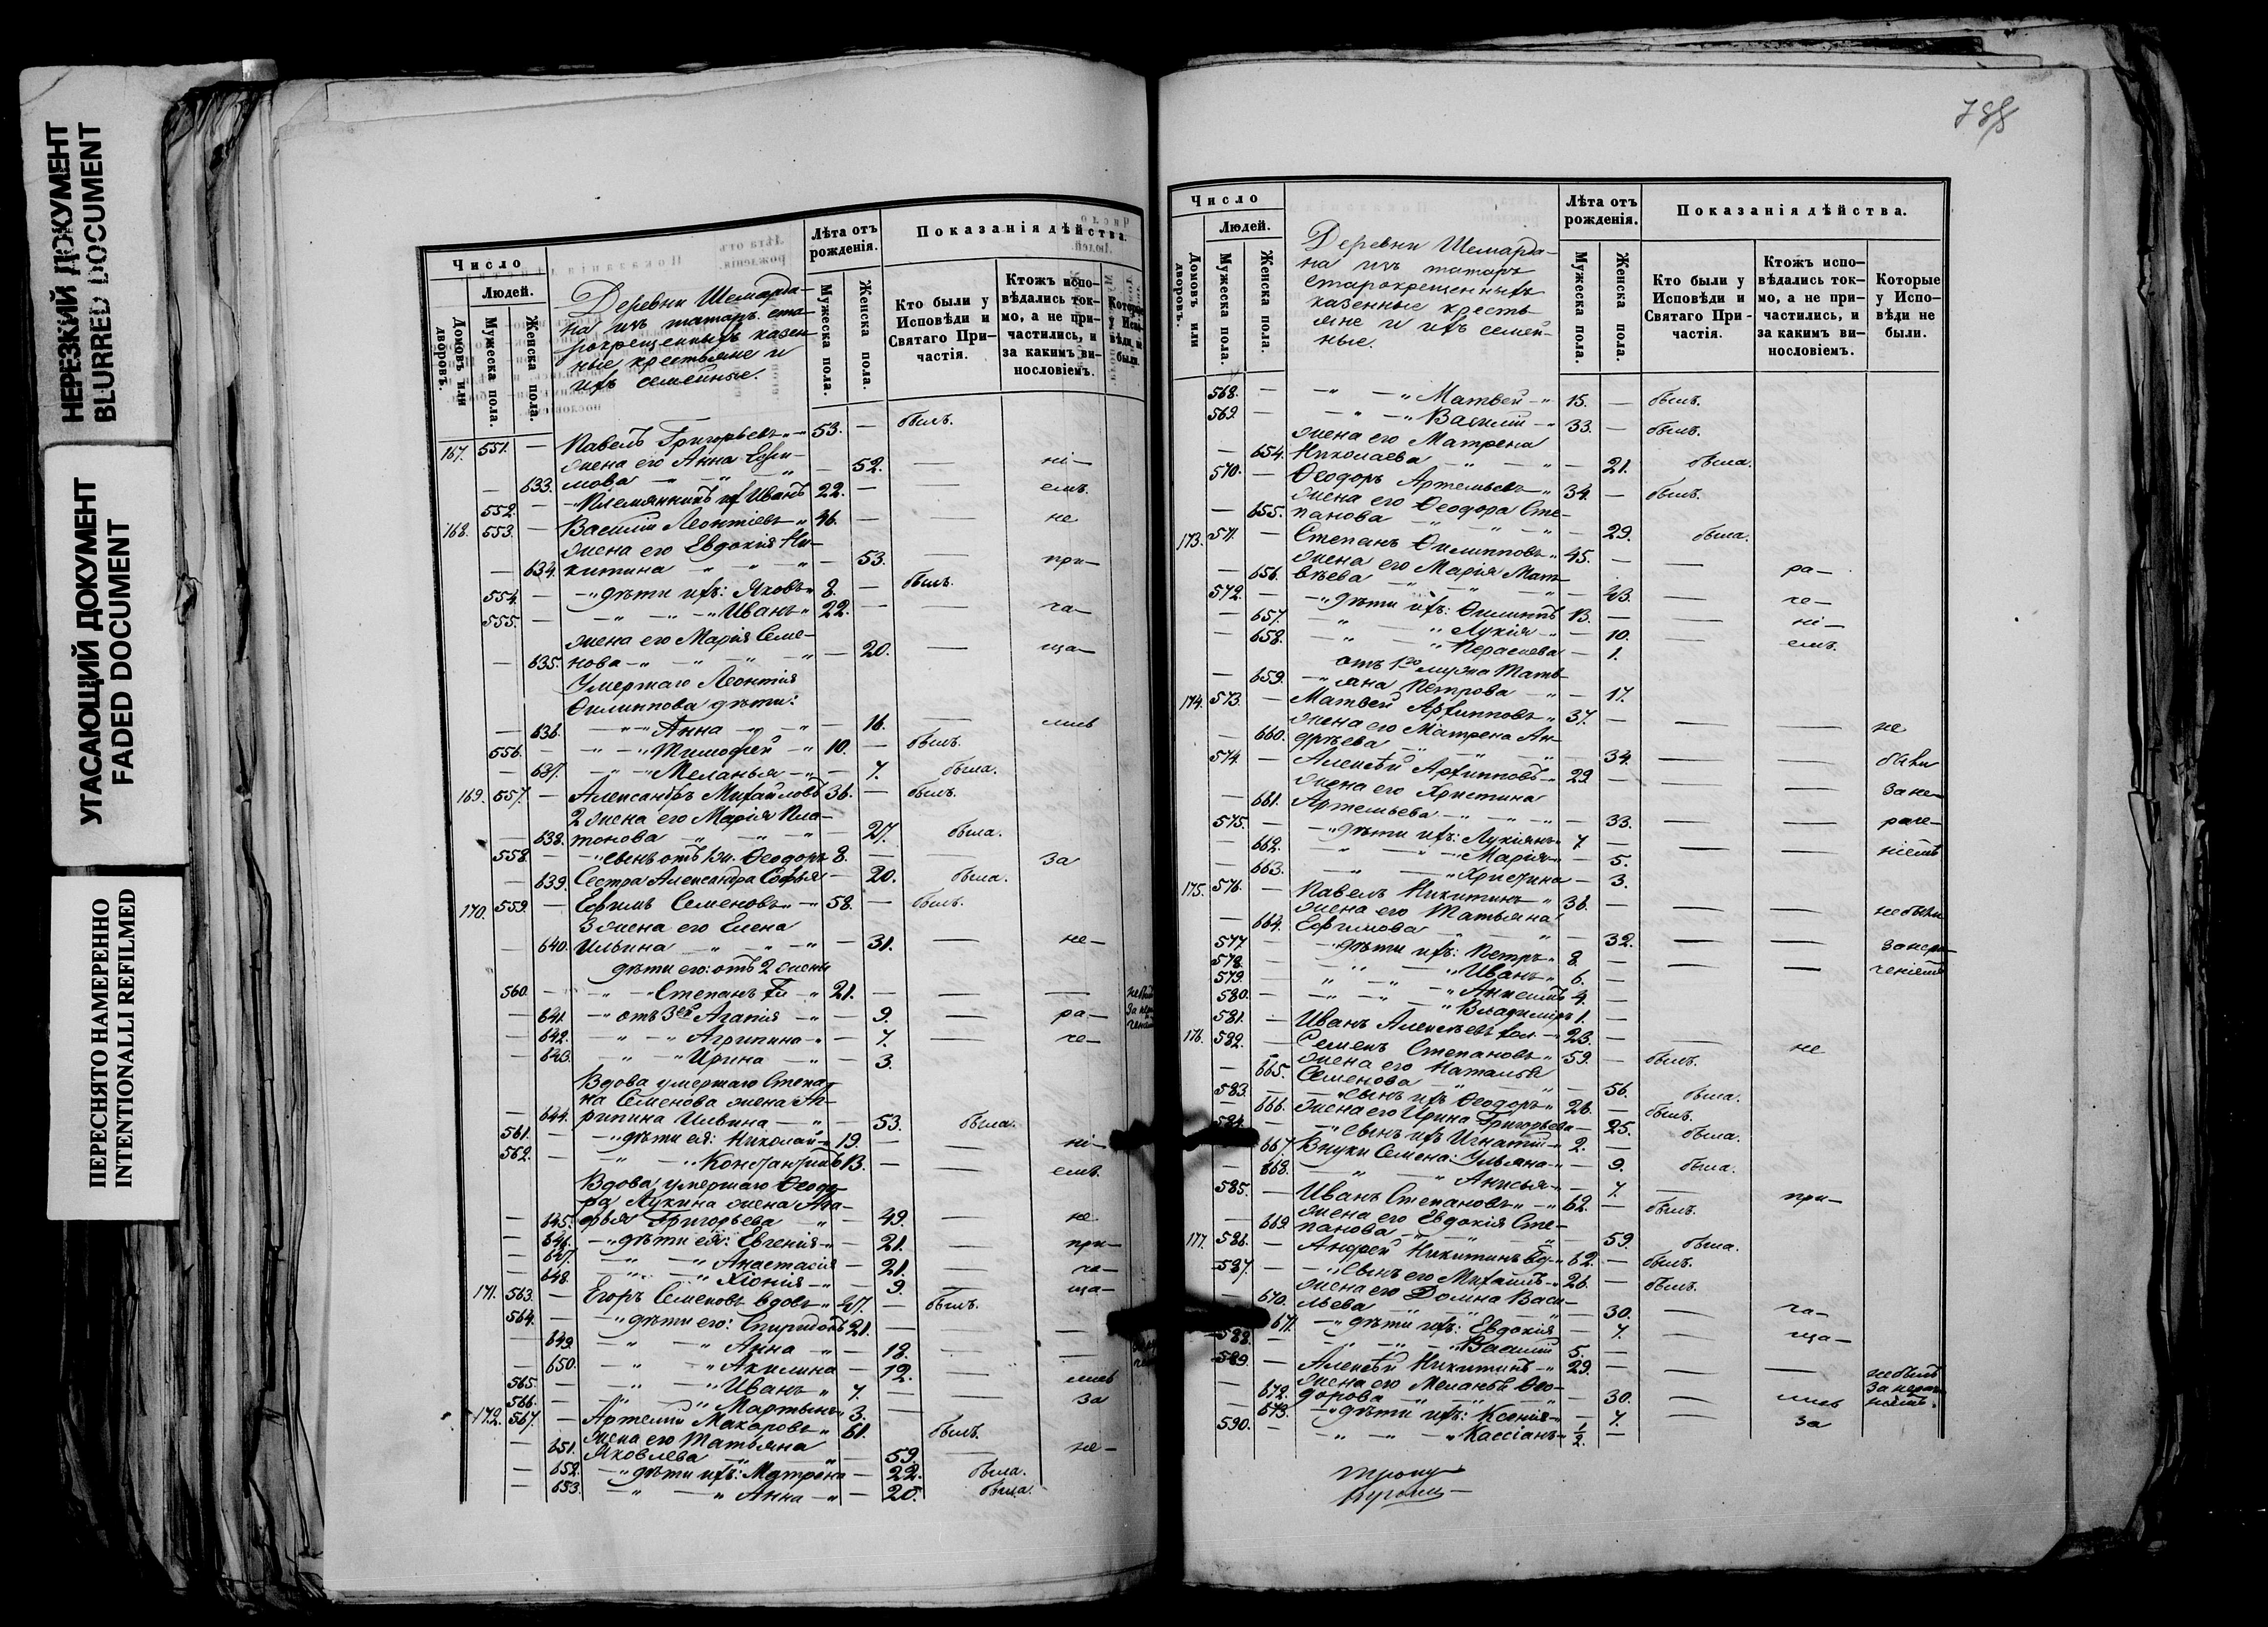 НЕРЕЗКИЙ ДОКУМЕНТ
BLURRED DOCUMENT
УГАСАЮЩИЙ ДОКУМЕНТ
FADED DOCUMENT
ПЕРЕСНЯТО НАМЕРЕННО
INTENTIONALLI REFILMED
Число
Людей.
Домовъ или дворовъ.
Мужеска пола.
Женска пола.
Деревни Шемарда-
на изъ татаръ ста-
рокрещенныхъ казен-
ные крестьяне и
ихъ семейные.
Лѣта отъ рожденія.
Мужеска пола
Женска пола.
Показанія дѣйства.
Кто были у Исповѣди и Святаго При-частія.
Ктожъ испо-вѣдались ток-мо, а не при-частились, и за какимъ ви-нословіемъ.
167. 551. — Павелъ Григорьевъ 53. — былъ.
жена его Анна Ефи-
— 633. мова — 52. — ні—
552. — Племянникъ их Иванъ 22. — емъ.
168. 553. — Василій Леонтіевъ 46. — не
жена его Евдокія Ни-
— 634. китина — 53. — при—
554. — дѣти ихъ: Яковъ 8. — былъ.
555. — Иванъ 22. — ча—
жена его Марія Семе-
— 635. нова — 20. — ща—
Умершаго Леонтія
Филиппова дѣти:
— 636. Анна — 16. — лись
556. — Тимофей 10. — былъ.
— 637. Меланья — 7. была.
169. 557. — Александръ Михайловъ 36. — былъ.
2 жена его Марія Пла-
— 638. тонова — 27. была.
558. — сынъ отъ 1 ж. Феодоръ 8. — За
— 639. Сестра Александра Софья — 20. была.
170. 559. — Ефимъ Семеновъ 58. — былъ.
3 жена его Елена
— 640. Ильина — 31. — не—
дѣти его: отъ 2 жены
560. — Степанъ 21. —
— 641. отъ 3ей Агапія — 9. — ра—
— 642. Агрипина — 7. — че—
— 643. Ирина — 3.
Вдова умершаго Степа-
на Семенова жена Аг-
— 644. рипина Ильина — 53. была.
561. — дѣти ея: Николай 19. — ні—
562. — Константинъ 13. — емъ.
Вдова умершаго Феодо-
ра Лукина жена Ага-
— 645. фья Григорьева — 49. — не
— 646. дѣти ея: Евгенія — 21. — при—
— 647. Анастасія — 21. — ча—
— 648. Хіонія — 9. ща—
171. 563. — Егоръ Семеновъ вдовъ 47. — былъ.
564. — дѣти его: Спиридонъ 21. —
— 649. Анна — 18. —
— 650. Акилина — 12. лись
565. — Иванъ 7. — За
566. — Мартынъ 3. —
172. 567. — Артемій Макаровъ 61. былъ.
жена его Татьяна
— 651. Яковлева — 59. — не—
— 652. дѣти ихъ: Матрона — 22. была.
— 653. Анна — 20. была.
Число
Людей.
Домовъ или дворовъ.
Мужеска пола.
Женска пола.
Деревни Шемарда-
на изъ татаръ
старокрещенныхъ
казенные кресть-
яне и ихъ семей-
ные.
Лѣта отъ рожденія.
Мужеска пола.
Женска пола.
Показанія дѣйства.
Кто были у Исповѣди и Святаго При-частія.
Ктожъ испо-вѣдались ток-мо, а не при-частились, и за какимъ ви-нословіемъ.
Которые у Испо-вѣди не были.
568. — Матвей 15. — былъ.
569. — Василій 33. — былъ.
жена его Матрена
— 654. Николаева — 21. была.
570. — Феодоръ Артемьевъ 34. — былъ.
жена его Феодора Сте-
— 655. панова — 29. была.
173. 571. — Степанъ Филипповъ 45. —
жена его Марія Мат-
— 656. вѣева — 43. — ра—
572. — дѣти ихъ: Филиппъ 13. — че—
— 657. Лукія — 10. ні—
— 658. Параскева — 1. емъ.
отъ 1го мужа Тать-
— 659. яна Петрова — 17.
174. 573. — Матвей Архиповъ 37. — не
жена его Матрена Ан-
— 660. дрѣева — 34. — были
574. — Алексѣй Архиповъ 29 — За не—
жена его Христина
— 661. Артемьева — 33. — раче—
575. — дѣти ихъ: Лукіянъ 7 — ніемъ
— 662. Марія — 5.
— 663. Христина — 3.
175. 576. — Павелъ Никитинъ 36. — не были
жена его Татьяна
— 664. Ефимова — 32. — за нера—
577. — дѣти ихъ: Петръ 8. — ченіемъ
578. — Иванъ 6. —
579. — Анисимъ 4. —
580. — Владиміръ 1. —
581. — Иванъ Алексѣевъ 23. — не
176. 582. — Семенъ Степановъ 59. — былъ.
жена его Наталья
— 665. Семенова — 56. была.
583. — сынъ ихъ Феодоръ 26. — былъ.
— 666. жена его Ирина Григорьева — 25. была.
584. — сынъ ихъ Игнатій 2. —
— 667. Внуки Семена: Ульяна — 9. была.
— 668. Анисья — 7. — при—
585. — Иванъ Степановъ 62. — былъ.
жена его Евдокія Сте-
— 669. панова — 59. была.
177. 586. — Андрей Никитинъ 62. — былъ.
587. — сынъ его Михаилъ 26. — былъ.
жена его Домна Васи-
— 670. льева — 30. — ча—
671. дѣти ихъ: Евдокія — 7. — ща—
588. — Василій 5. —
589. — Алексѣй Никитинъ 29. — не былъ
жена его Меланья Фео-
— 672. дорова — 30. — лись
— 673. дѣти ихъ: Ксенія — 7. — За
590. — Кассіанъ ½ —